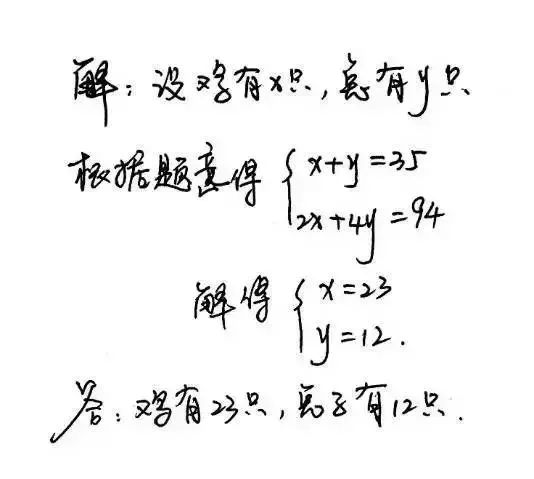 解：设鸡有x只，兔有y只
根据题意得 { x+y=35
2x+4y=94
解得 { x=23
y=12.
答：鸡有23只，兔子有12只.